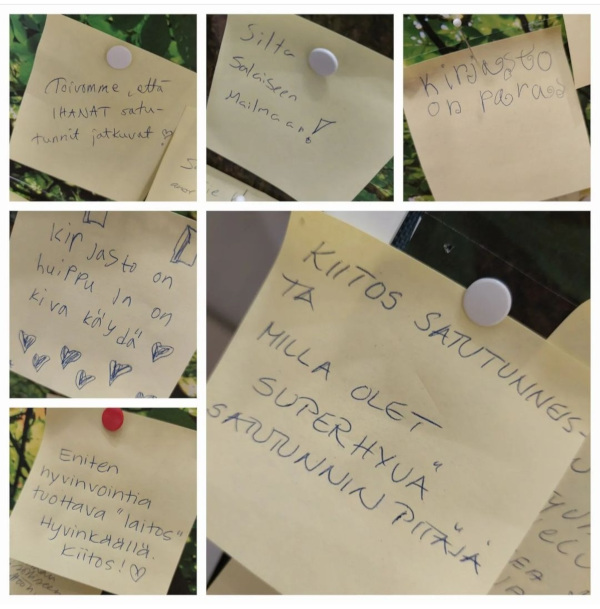 Toivomme, että
IHANAT satu-
tunnit jatkuvat
Silta
Salaiseen
Mailmaan!
Kirjasto
on paras
Kirjasto on
huippu Jn on
kiva käydä
KIITOS SATUTUNNEIS-
TA
MILLA OLET
SUPERHYVÄ
SATUTUNNIN PITÄJÄ
Eniten
hyvinvointia
tuottava "laitos"
Hyvinkäällä.
Kiitos!